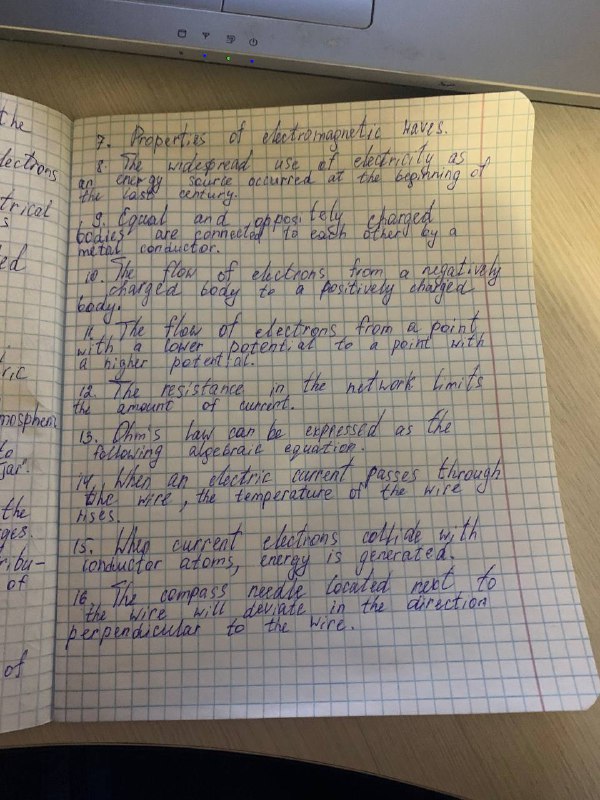 the
lectrons
trical
s
ed
ric
mospheri
to
jar".
the
ges.
t
ribu-
of
of
7. Properties of electromagnetic waves.
8. The widespread use of electricity as
an energy source occurred at the beginning of
the last century.
9. Equal and oppositely charged
bodies are connected to each other by a
metal conductor.
10. The flow of electrons from a negatively
charged body to a positively charged
body.
11. The flow of electrons from a point
with a lower potential to a point with
a higher potential.
12. The resistance in the network limits
the amount of current.
13. Ohm's law can be expressed as the
following algebraic equation.
14. When an electric current passes through
the wire, the temperature of the wire
rises.
15. When current electrons collide with
conductor atoms, energy is generated.
16 The compass needle located next to
the wire will deviate in the direction
perpendicular to the wire.